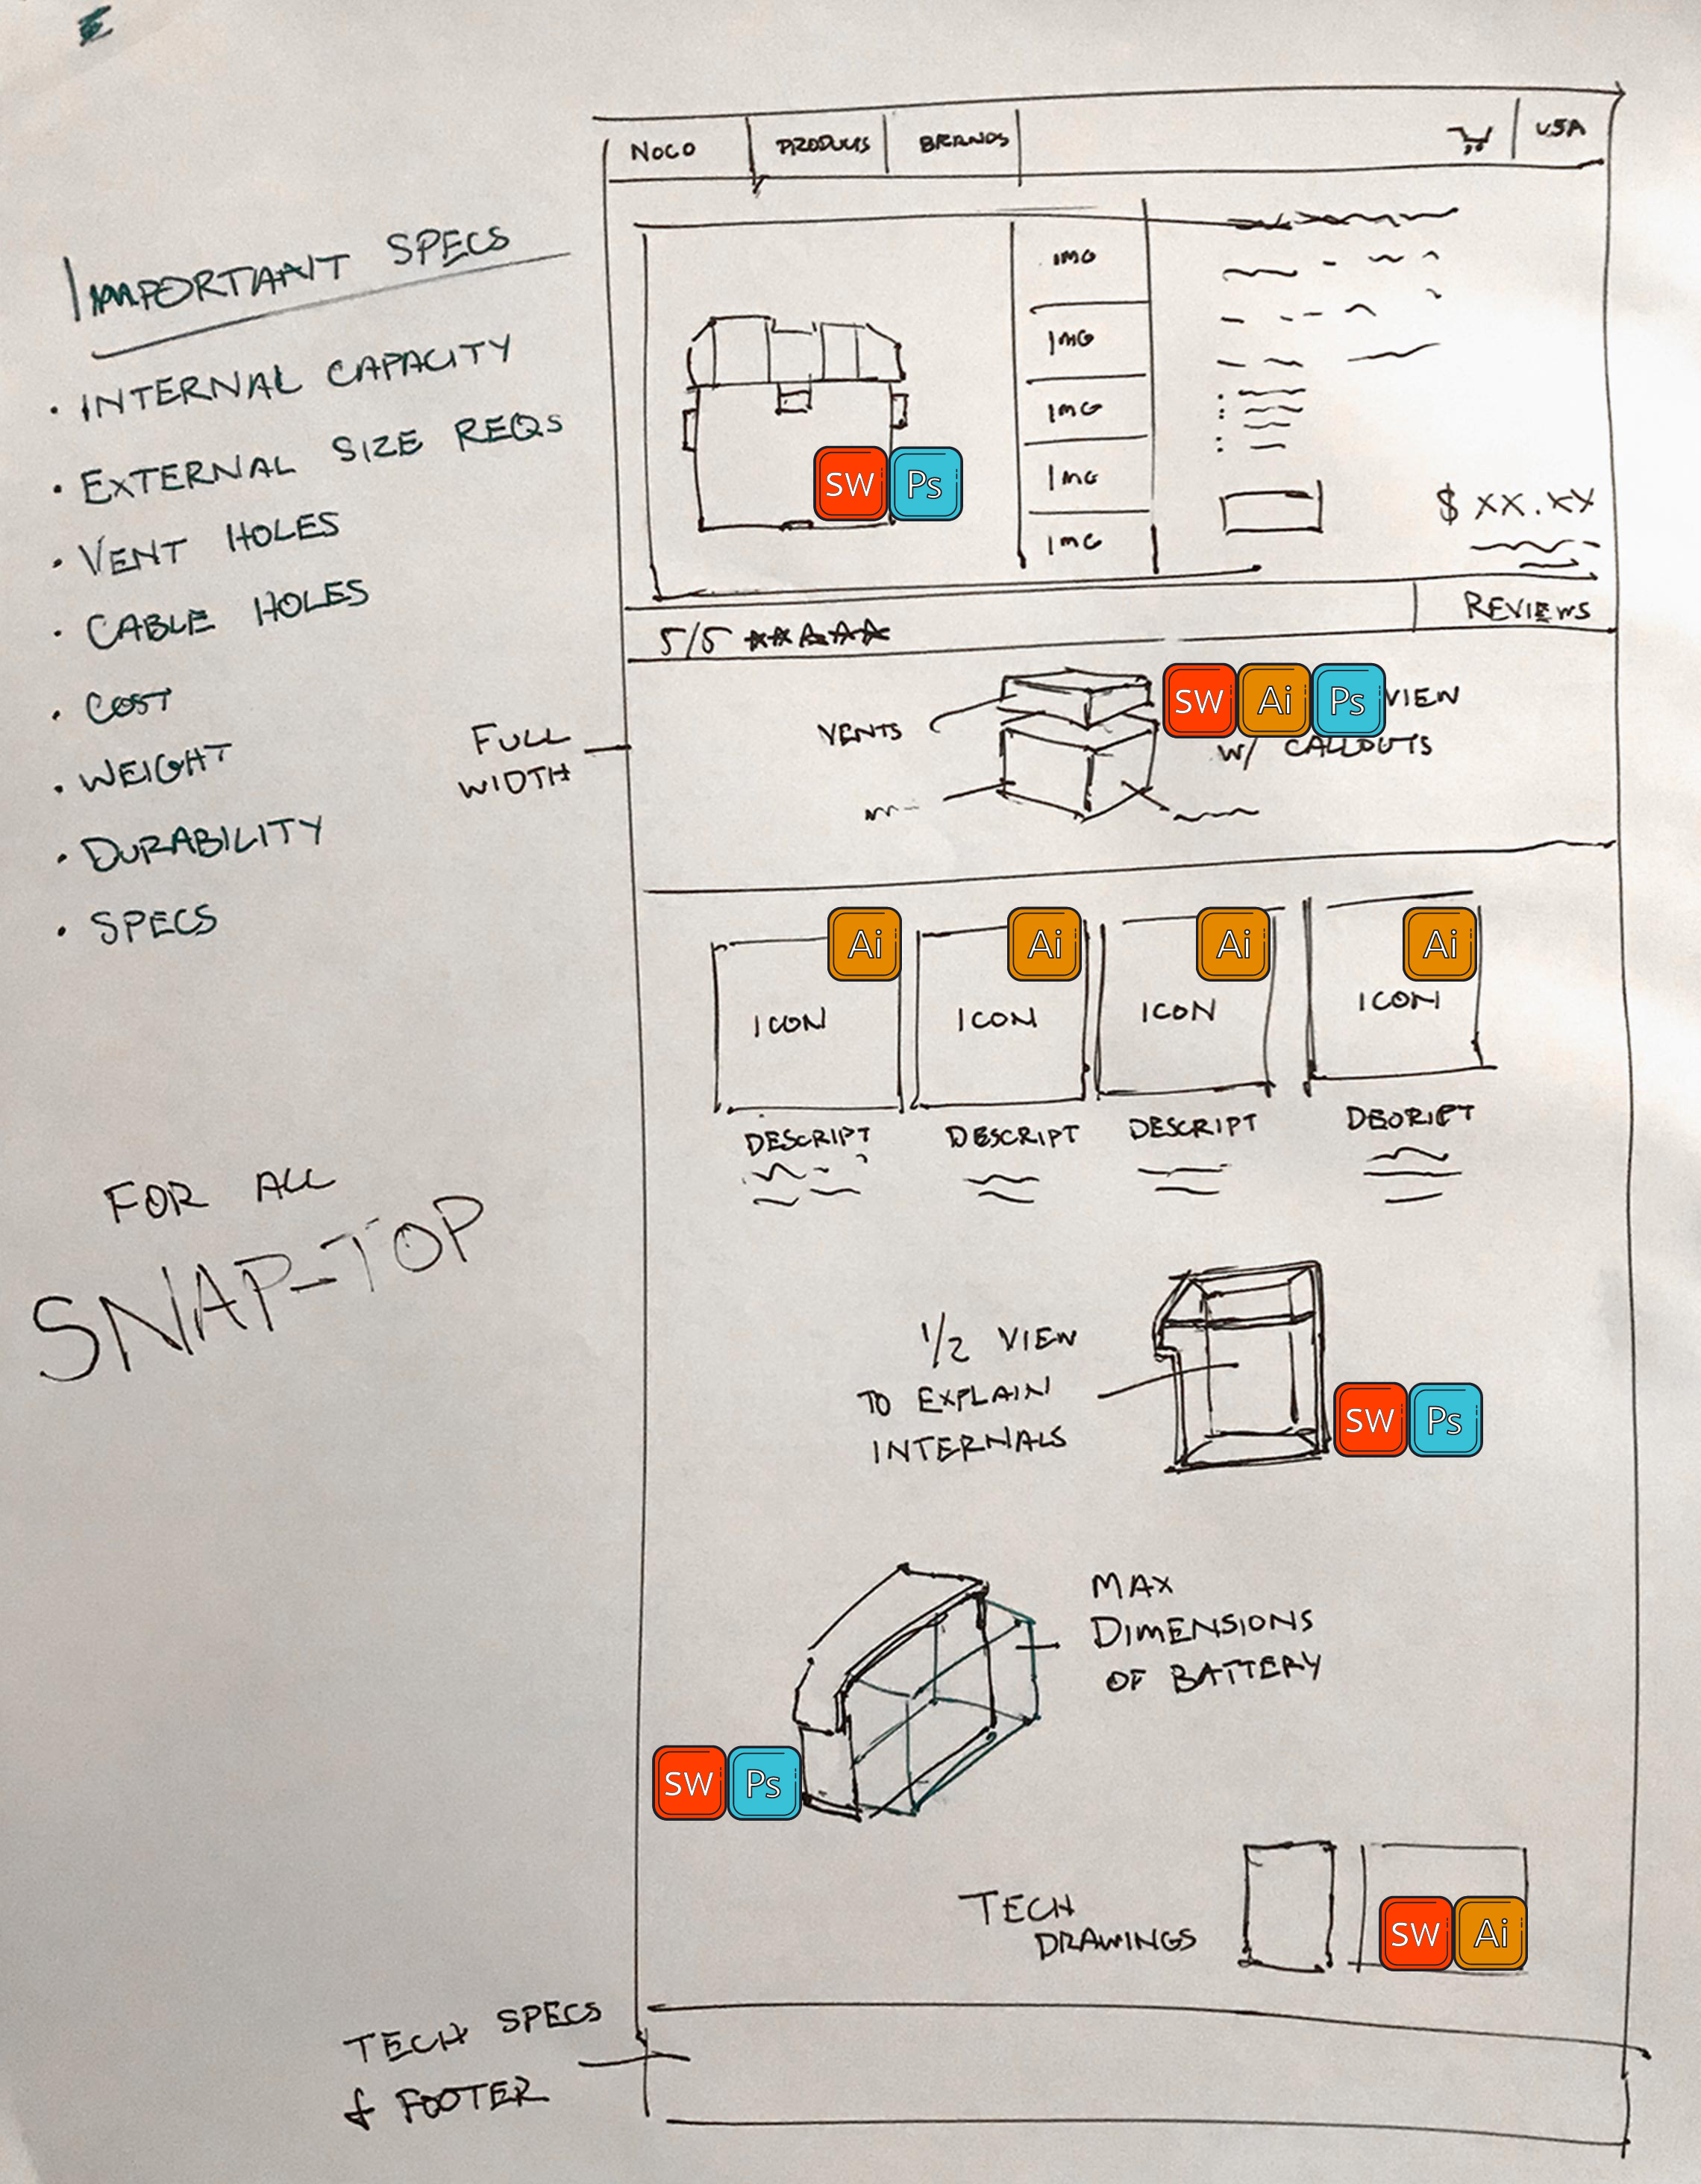 IMPORTANT SPECS
• INTERNAL CAPACITY
• EXTERNAL SIZE REQS
• VENT HOLES
• CABLE HOLES
• COST
• WEIGHT
• DURABILITY
• SPECS
FOR ALL
SNAP-TOP
NOCO PRODUCTS BRANDS USA
IMG
IMG
IMG
IMG
IMG
SW Ps
$ XX.XX
5/5 REVIEWS
FULL
WIDTH
VENTS
SW Ai Ps VIEW
W/ CALLOUTS
Ai Ai Ai Ai
ICON ICON ICON ICON
DESCRIPT DESCRIPT DESCRIPT DESCRIPT
1/2 VIEW
TO EXPLAIN
INTERNALS
SW Ps
MAX
DIMENSIONS
OF BATTERY
SW Ps
TECH
DRAWINGS
SW Ai
TECH SPECS
& FOOTER